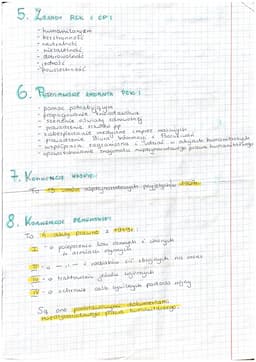 5. Zasady RCK i CP:
- humanitaryzm
- bezstronność
- neutralność
- niezależność
- dobrowolność
- jedność
- powszechność
6. Podstawowe zadania PCK:
- pomoc potrzebującym
- propagowanie krwiodawstwa
- szerzenie oświaty zdrowotnej
- prowadzenie szkoleń pp
- zabezpieczenie medyczne imprez masowych
- prowadzenie Biura Informacji i Poszukiwań
- współpraca zagraniczna i udział w akcjach humanitarnych
- upowszechnianie znajomości międzynarodowego prawa humanitarnego
7. Konwencje haskie:
To 13 umów międzynarodowych przyjętych
8. Konwencje genewskie:
To 4 akty prawne z 1949r.
I - o polepszeniu losu rannych i chorych
w armiach czynnych
II - — „ — i rozbitków sił zbrojnych na morzu
III - o traktowaniu jeńców wojennych
IV - o ochronie osób cywilnych podczas wojny
Są one podstawowymi dokumentami
międzynarodowego prawa humanitarnego.